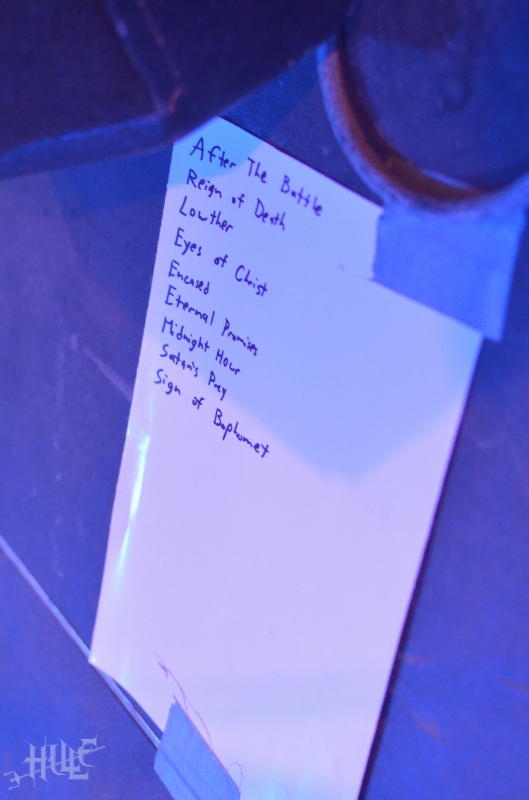 After The Battle
Reign of Death
Lowther
Eyes of Christ
Encased
Eternal Promises
Midnight Hour
Satan's Prey
Sign of Baphomet